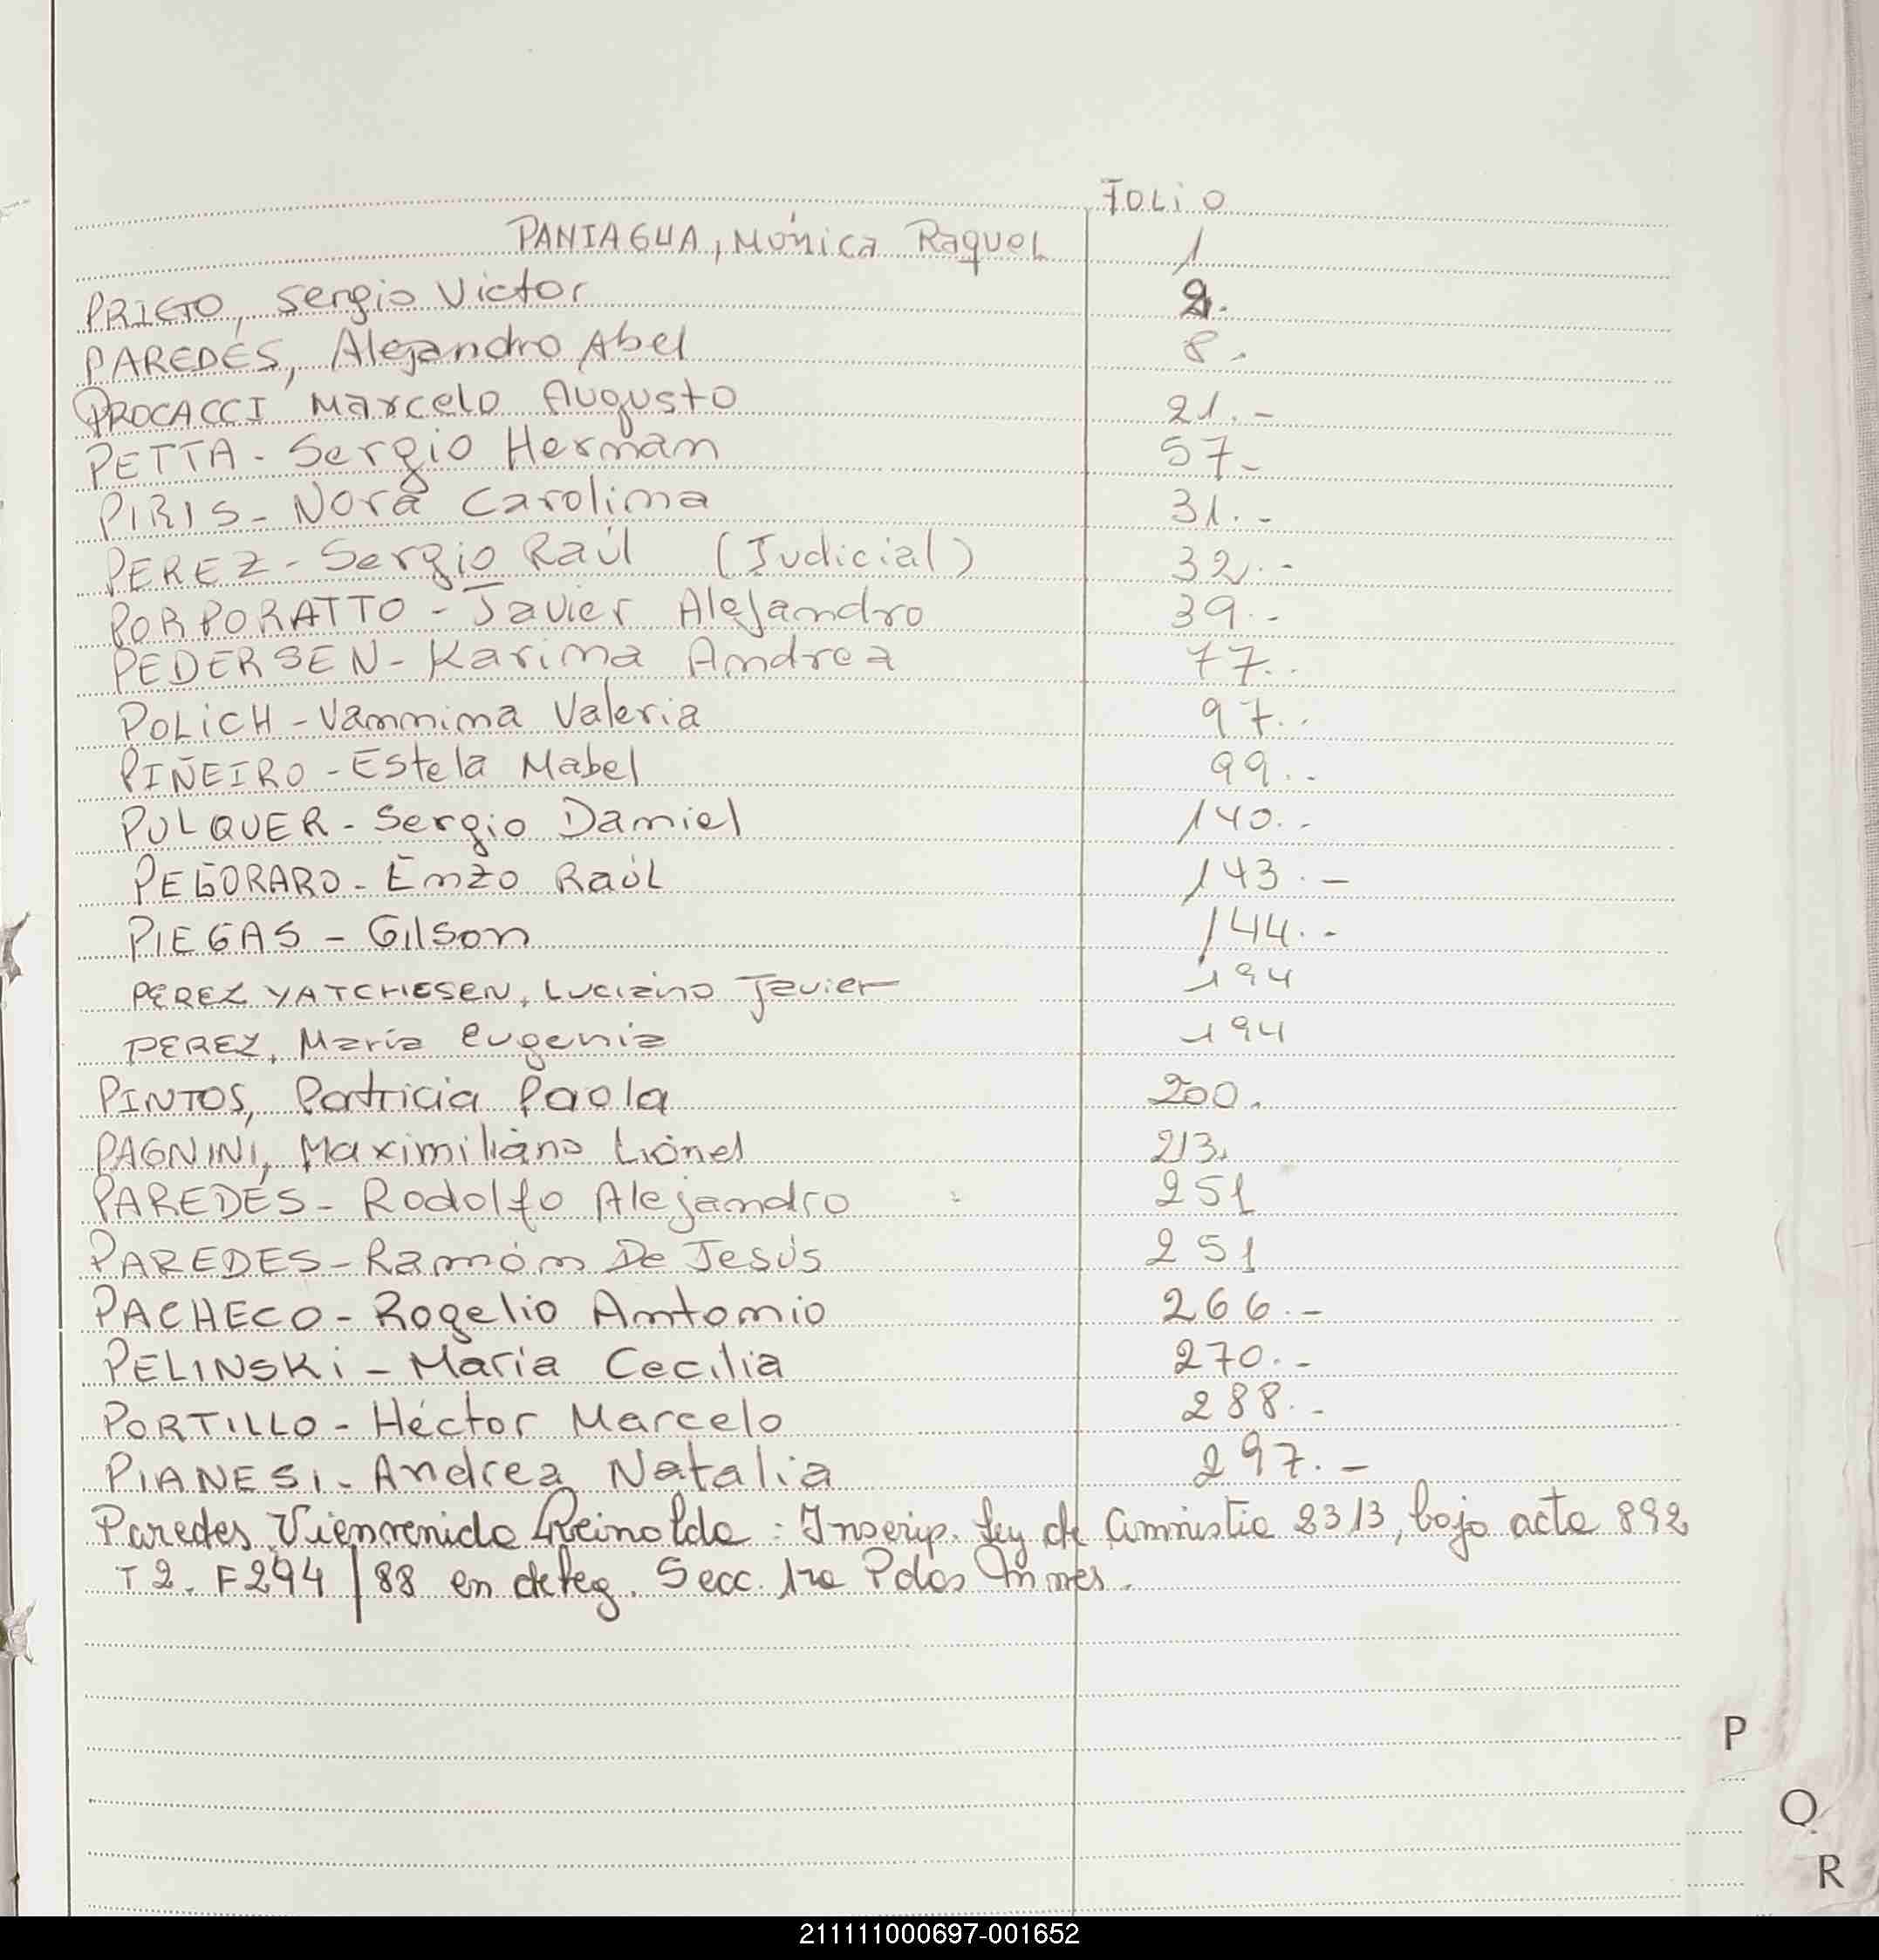 FOLIO
PANIAGUA, Mónica Raquel 1
PRIETO, Sergio Victor 2.
PAREDES, Alejandro Abel 8.
PROCACCI Marcelo Augusto 21.-
PETTA - Sergio Hernán 57-
PIRIS - Nora Carolina 31.-
PEREZ - Sergio Raúl (Judicial) 32.-
PORPORATTO - Javier Alejandro 39.-
PEDERSEN - Karina Andrea 77.-
POLICH - Vannina Valeria 97..
PIÑEIRO - Estela Mabel 99..
PULQUER - Sergio Daniel 140.-
PEGORARO - Enzo Raúl 143.-
PIEGAS - Gilson 144.-
PEREZ YATCHESEN, Luciano Javier 194
PEREZ, María Eugenia 194
PINTOS, Patricia Paola 200.
PAGNINI, Maximiliano Lionel 213.
PAREDES - Rodolfo Alejandro 251
PAREDES - Ramón De Jesús 251
PACHECO - Rogelio Antonio 266.-
PELINSKI - María Cecilia 270.-
PORTILLO - Héctor Marcelo 288.-
PIANESI - Andrea Natalia 297.-
Paredes Vienvenido Reinoldo: Inscrip. Ley de Amnistia 2313, bajo acta 892
T2. F294/88 en deleg. Secc. 1ra Pdas Mnes.
P
Q
R
211111000697-001652